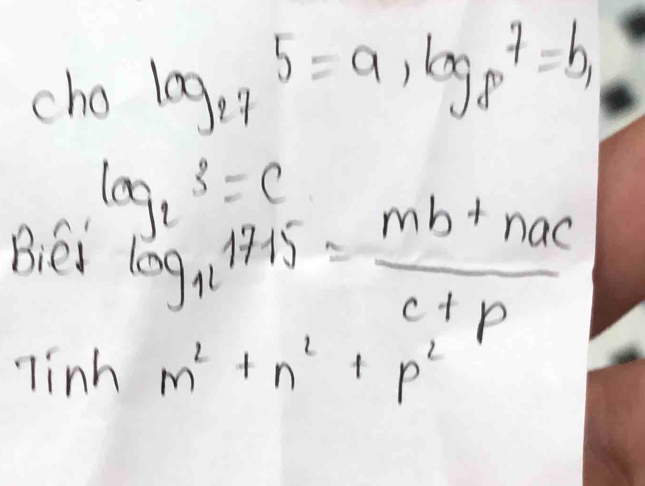 cho log₂₇ 5 = a, log₈ 7 = b,
log₂ 3 = c
Biết log₁₂ 1715 = (mb + nac)/(c + p)
Tính m² + n² + p²